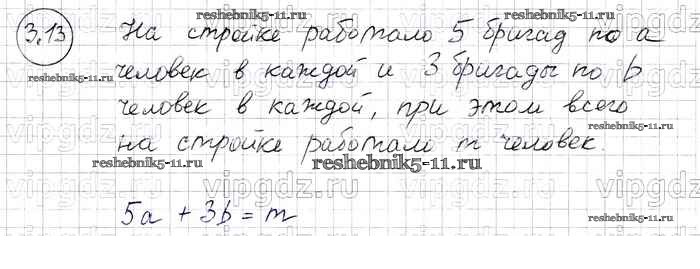 3.13 На стройке работало 5 бригад по a
человек в каждой и 3 бригады по b
человек в каждой, при этом всего
на стройке работали m человек.
5a + 3b = m
reshebnik5-11.ru
reshebnik5-11.ru
reshebnik5-11.ru
reshebnik5-11.ru
reshebnik5-11.ru
reshebnik5-11.ru
vipgdz.ru
vipgdz.ru
vipgdz.ru